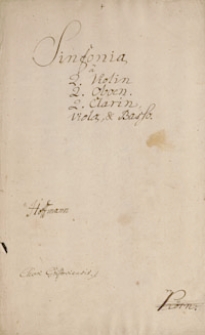 Sinfonia.
a
2. Violin
2. Oboen.
2. Clarin.
Viola, & Basso.
Hoffmann